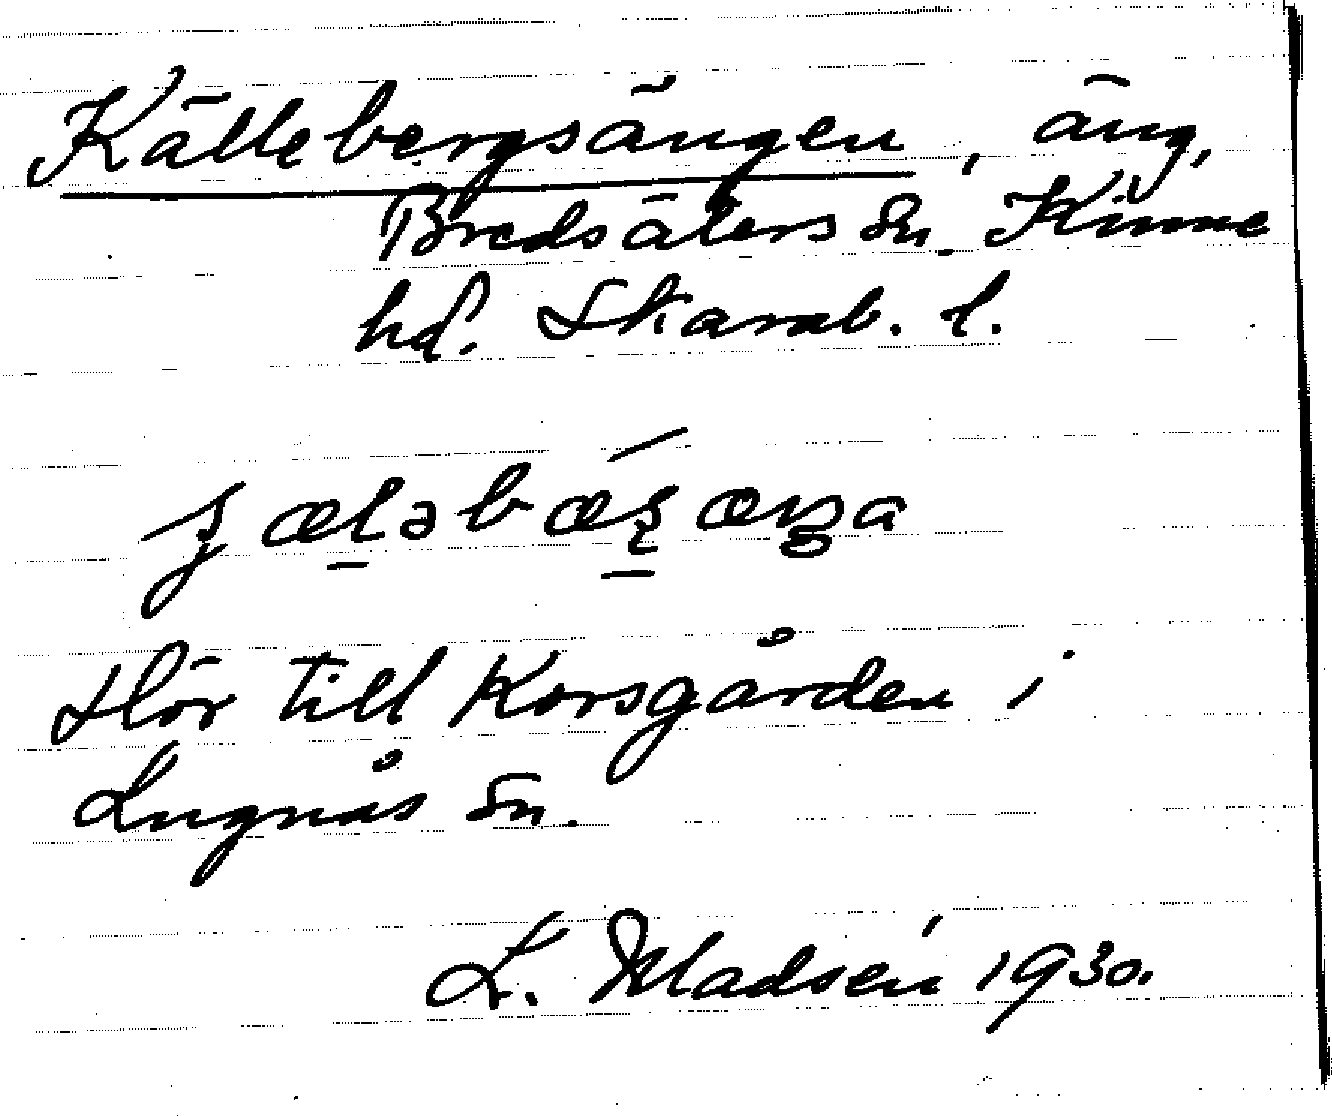 Källebergsängen, äng,
Bredsäters sn. Kinne
hd. Skarab. l.
Hör till Korsgården i
Lugnås sn.
L. Madsén 1930.